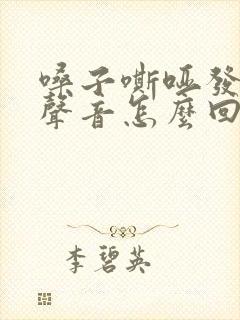 嗓子嘶啞發
聲音怎麼回
李碧英